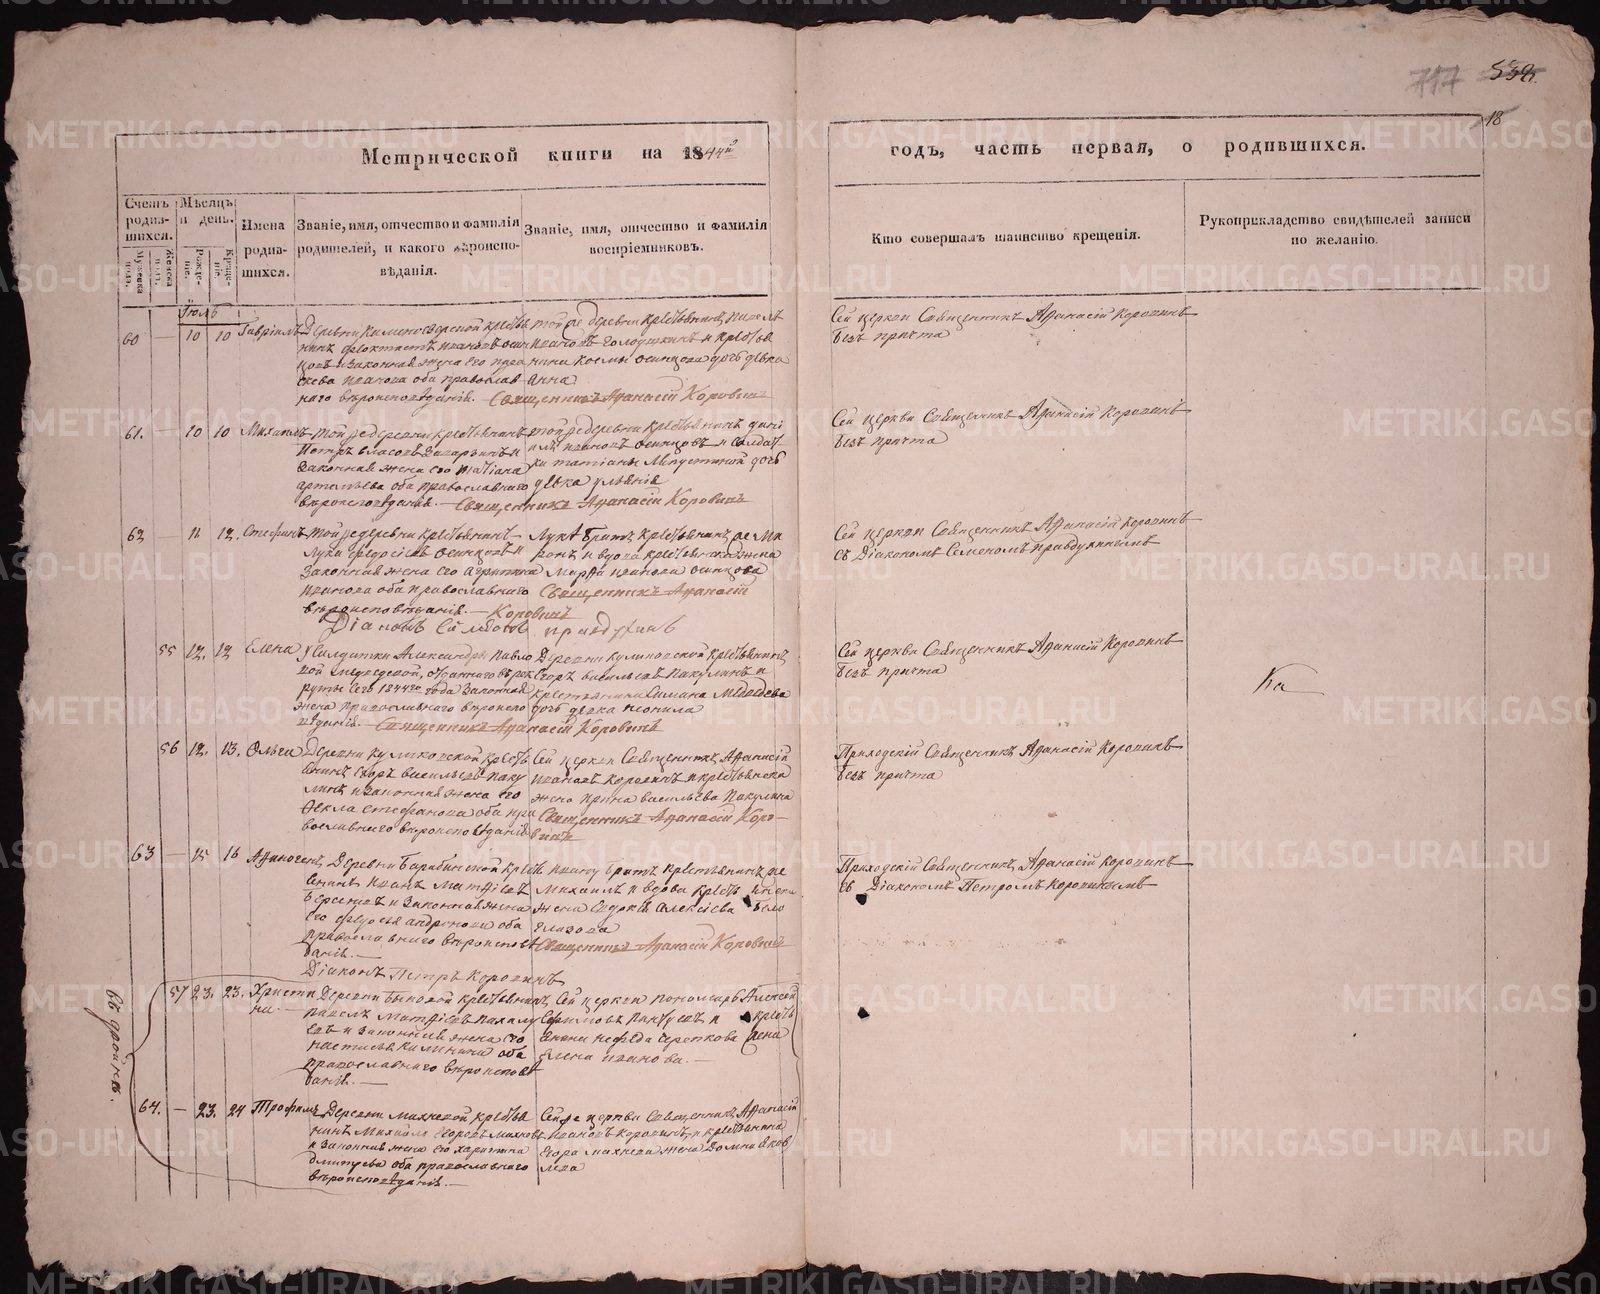 717 539.
18
Метрической книги на 1844й
годъ, часть первая, о родившихся.
Счетъ родившихся.
Мужеска пола.
Женска пола.
Мѣсяцъ и день.
Рожденіе.
Крещеніе.
Имена родившихся.
Званіе, имя, отчество и фамилія родителей, и какого вѣроисповѣданія.
Званіе, имя, отчество и фамилія воспріемниковъ.
Кто совершалъ таинство крещенія.
Рукоприкладство свидѣтелей записи по желанію.
Іюль
60 — 10 10 Гавріилъ
Деревни Каменоозерской крестья
нинъ Феоктистъ Ивановъ Осин
цовъ и законная жена его Пара
скева Иванова оба православ
наго вѣроисповѣданія. — Священникъ Афанасій Коровинъ
той же деревни крестьянинъ
Ивановъ Голодушкинъ и крестья
нина Космы Осинцова дочь дѣвка
Анна
Сей церкви Священникъ Афанасій Коровинъ
безъ причта
61. — 10 10 Михаилъ
той же деревни крестьянинъ
Петръ Власовъ Захаровъ и
законная жена его Татіана
Артемьева оба православнаго
вѣроисповѣданія. — Священникъ Афанасій Коровинъ
той же деревни крестьянинъ
Ивановъ Осинцовъ и солдат
ки Татіаны дочь
дѣвка Ульянія
Сей церкви Священникъ Афанасій Коровинъ
безъ причта
62 — 11 12. Стефанъ
той же деревни крестьянинъ
Лука Федосѣевъ Осинцовъ и
законная жена его Агрипина
Иванова оба православнаго
вѣроисповѣданія. — Коровинъ
Луки братъ крестьянинъ же Ми
ронъ и вдова крестьянская жена
Марфа Иванова Осинцова
Священникъ Афанасій
Діаконъ Симеонъ Правдухинъ
Сей церкви Священникъ Афанасій Коровинъ
съ Діакономъ Семеномъ Правдухинымъ
55 12. 12 Елена
у Солдатки Александры Павло
вой Медведевой, отданнаго въ рек
руты сего 1844го года законная
жена православнаго вѣроиспо
вѣданія. — Священникъ Афанасій Коровинъ
Деревни Куликовской крестьянинъ
Егоръ Васильевъ Пакулинъ и
крестьянина Симана Медведева
дочь дѣвка Неонила
Сей церкви Священникъ Афанасій Коровинъ
безъ причта
56 12. 13. Ольга
Деревни Куликовской кресть
янинъ Егоръ Васильевъ Паку
линъ и законная жена его
Фекла Стефанова оба пра
вославнаго вѣроисповѣданія
Сей церкви Священникъ Афанасій
Ивановъ Коровинъ и крестьянска
жена Ирина Васильева Пакулина
Священникъ Афанасій Коро-
винъ
Приходскій Священникъ Афанасій Коровинъ
безъ причта
63 — 15 16 Афиногенъ
Деревни Барабинской кресть
янинъ Иванъ Матфѣевъ
и законная жена
его Федосья Андронова оба
православнаго вѣроисповѣ
данія. —
Ивану братъ крестьянинъ же
Михаилъ и вдова
жена Алексѣева Бело
глазова
Священникъ Афанасій Коровинъ
Діаконъ Петръ Коровинъ
Приходскій Священникъ Афанасій Коровинъ
съ Діакономъ Петромъ Коровинымъ
57 23. 23. Христи
на. —
Деревни Быковой крестьянинъ
Павелъ Матфѣевъ
и законная жена его
Настасья Калинина оба
православнаго вѣроисповѣ
данія. —
Сей церкви Пономарь Алексѣй
Ефимовъ и кресть
янина Нефеда Черепкова жена
Елена Иванова. —
64. — 23. 24 Трофимъ
Деревни Махневой крестья
нинъ Михайло Егоровъ Махнёвъ
и законная жена его Харитина
Дмитрева оба православнаго
вѣроисповѣданія. —
Сей же церкви Священникъ Афанасій
Ивановъ Коровинъ, и крестьянина
Егора Махнева жена Домна Яков
лева